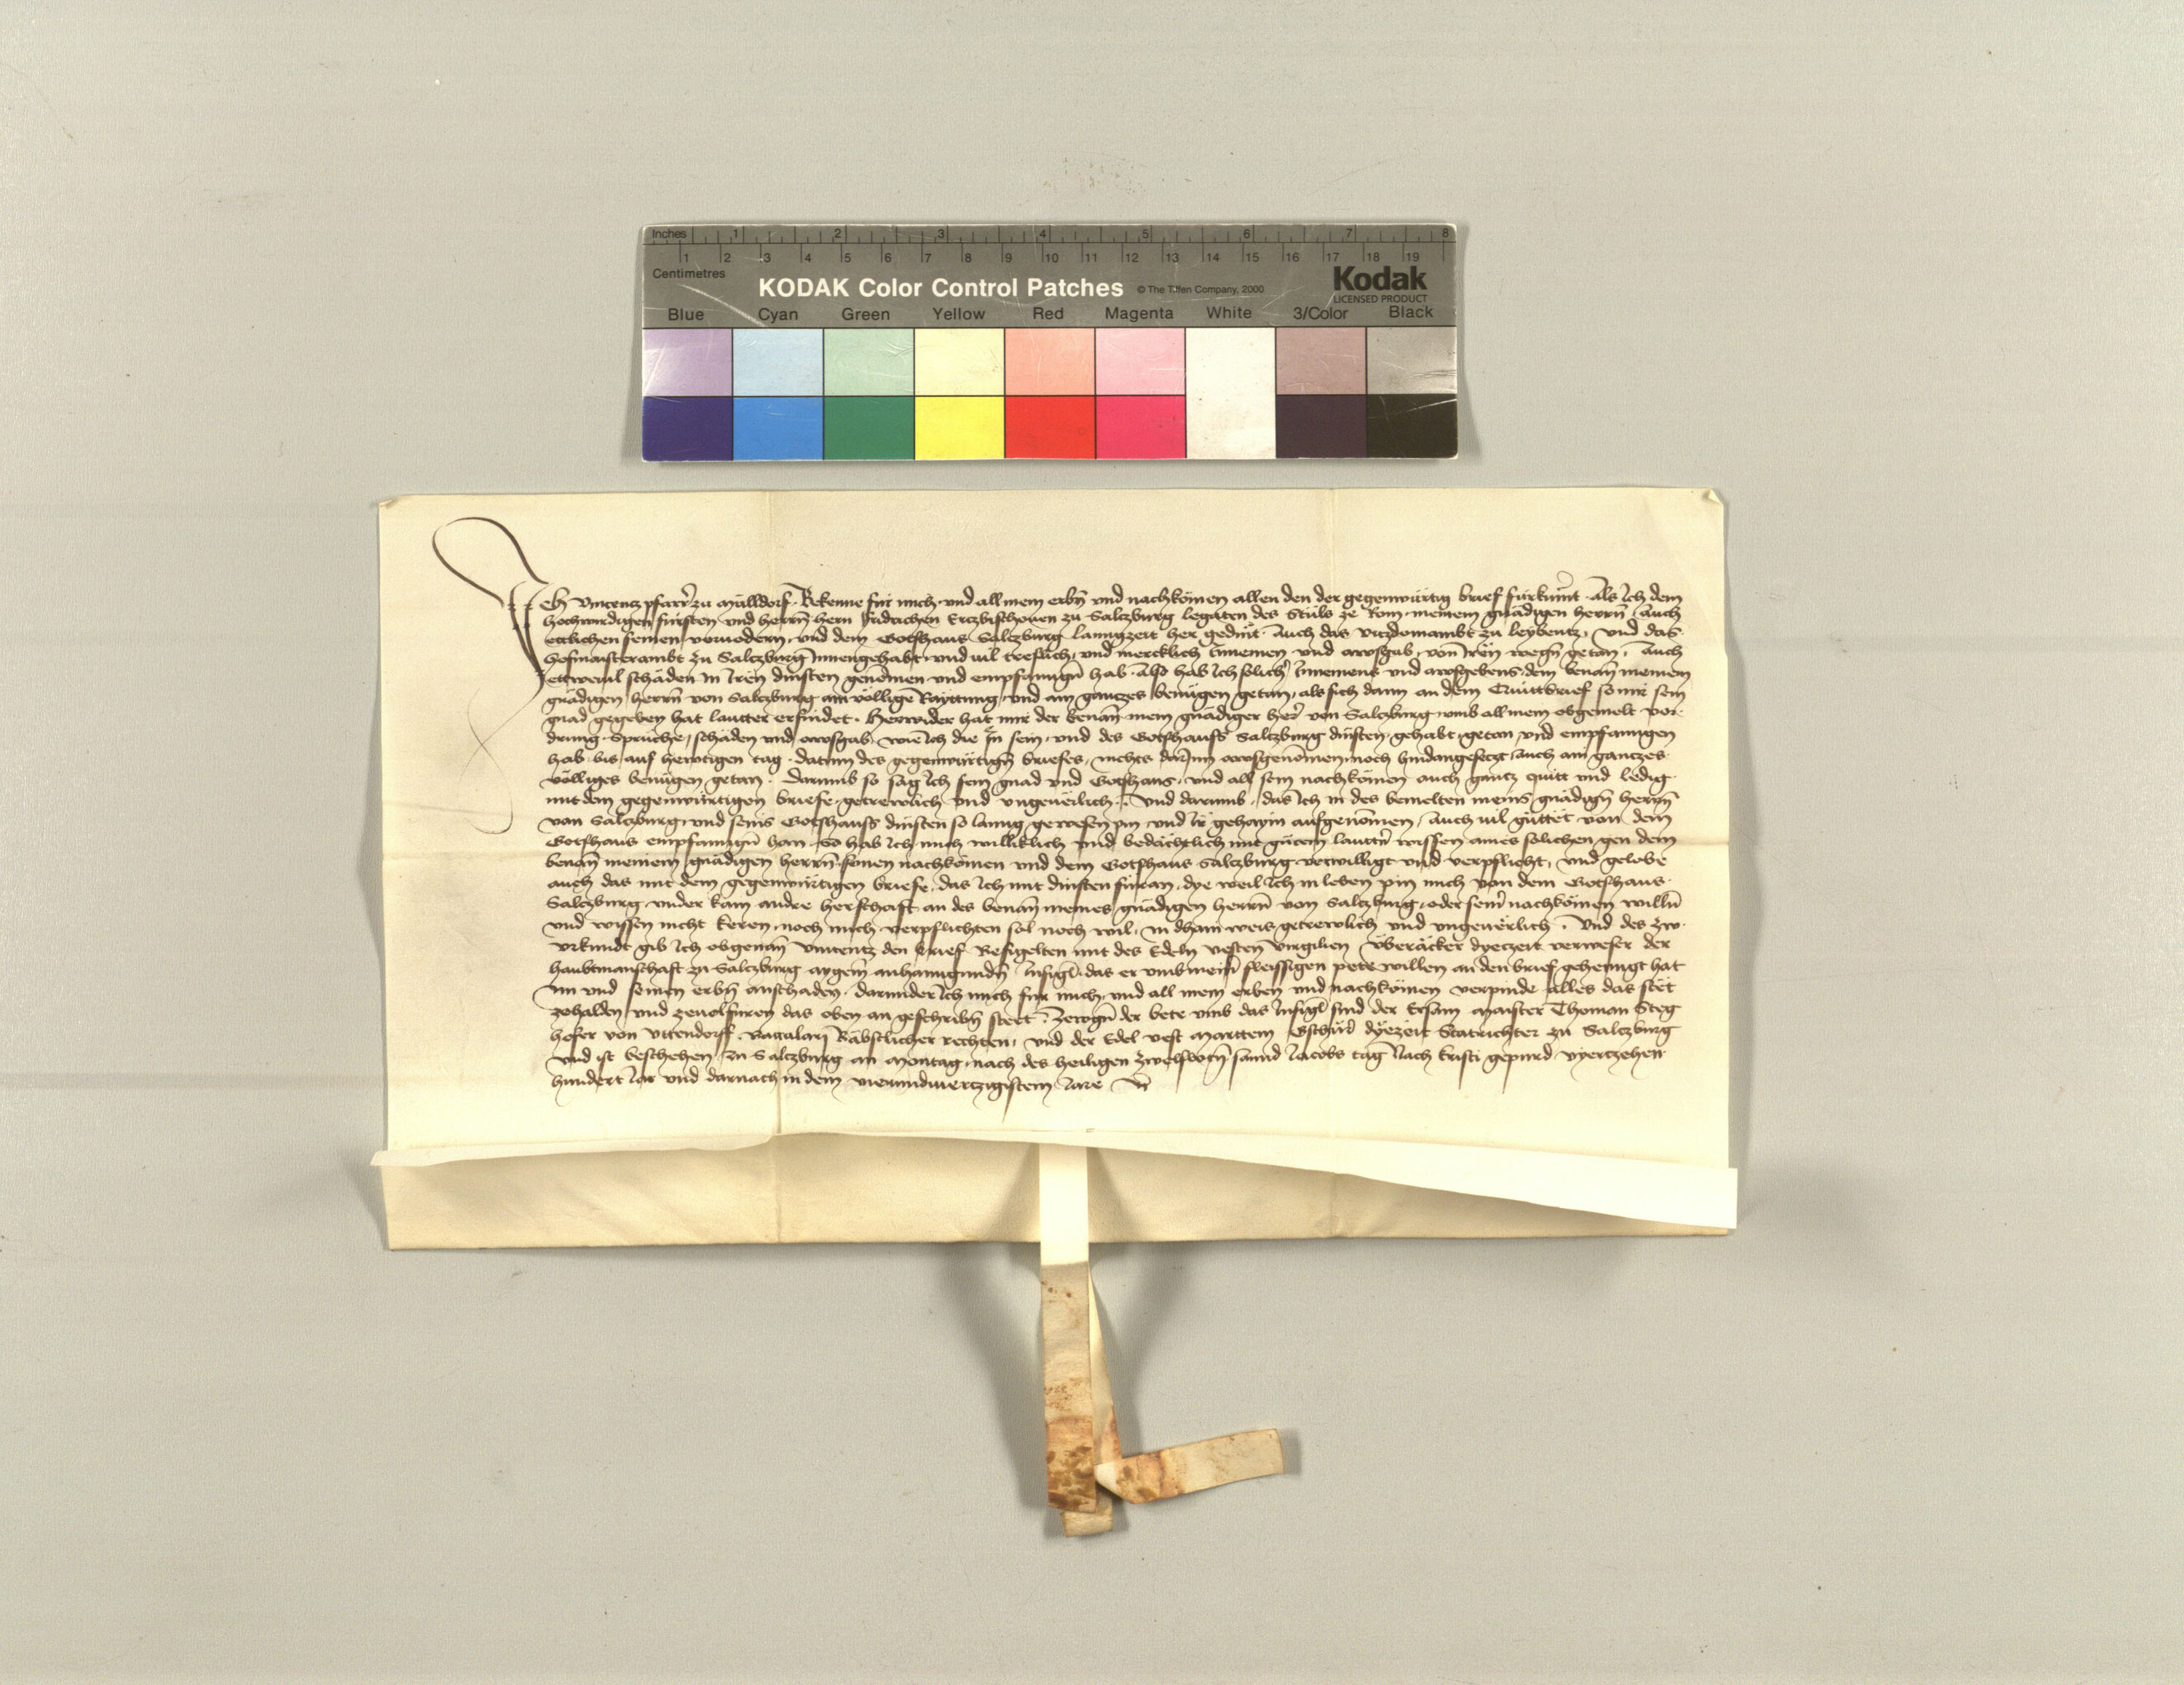 Inches 1 2 3 4 5 6 7 8
1 2 3 4 5 6 7 8 9 10 11 12 13 14 15 16 17 18 19
Centimetres
KODAK Color Control Patches © The Tiffen Company, 2000 Kodak
LICENSED PRODUCT
Blue Cyan Green Yellow Red Magenta White 3/Color Black
Ich Vincentz pfarr̄ zu Mülldorf Bekenne für mich und all mein erbn̄ und nachkömen allen den der gegenwürtig brief fürkumt Als Ich dem
hochwirdigen fürsten und herrn̄ hern Fridrichen Ertzbischouen zu Saltzburg legaten des Stüls ze Rom meinem gnädigen herrn̄ Auch
ettlichen seinen voruodern und dem Gotshaus Saltzburg lanngzeit her gedint Auch das vitzdomambt zu leybentz, und das
Hofmaisterambt zu Saltzburg Innengehabt und uil treflich und mercklich Innemen und awsgab von Iren wegn̄ getan, Auch
ettweuil schäden In Iren dinsten genömen und empfanngn̄ hab Also hab Ich solich Innemens und awsgebens dem benan̄ meinem
gnädigen herrn̄ von Saltzburg ain völlige Rayttung und ain gantzes benügen getan, als sich dann an dem Quittbrief so mir sein
gnad gegeben hat lautter erfindet. Herwider hat mir der benan̄ mein gnädiger her̄ von Saltzburg umb all mein obgemelt vor
drung Sprüche, schäden und awsgab, wie Ich die In sein und des Gotshauss Saltzburg dinsten gehabt getan und empfanngen
hab bis auf hewtigen tag datum des gegenwürtign̄ briefes, nichts darInn awsgenömen noch hindangesetzt auch ain gantzes
völliges benügen getan. Darumb so sag Ich sein gnad und Gotshaus und all sein nachkömen auch gantz quitt und ledig
mit dem gegenwürtigen briefe getrewlich und ungeuerlich. Und darumb, das Ich in des bemelten meins gnädign̄ herrn̄
von Saltzburg und seins Gotshauss dinsten so lanng gewesen pin und Ir gehaym aufgenömen, Auch uil güttet von dem
Gotshaus empfanngn̄ han So hab Ich mich williklich und bedächtlich mit gütem lauttn̄ wissen aines solichen gen dem
benan̄ meinem gnädigen herrn̄ seinen nachkömen und dem Gotshaus Saltzburg verwilligt und verpflicht, und gelobe
auch das mit dem gegenwürtigen briefe, das Ich mit dinsten füran, dye weil Ich in leben pin mich von dem Gotshaus
Saltzburg under kain andre herschaft an des benan̄ meines gnädigen herrn̄ von Saltzburg, oder sein̄ nachkömen willn̄
und wissen nicht keren, noch mich verpflichten sol noch wil, in dhain weis getrewlich und ungeuerlich. Und des zw
vrkundt gib Ich obgenan̄ Vincentz den brief Besigelten mit des Edeln vesten Virgilien Überäcker dyeczeit verweser der
haubtmanschaft zu Saltzburg aygem̄ anhanngundn̄ Insigl̄, das er umb mein̄ fleissigen pete willen an den brief gehenngt hat
im und seinen erbn̄ anschaden. Darunder Ich mich für mich und all mein erben und nachkömen verpinde alles das stet
zehalden und zeuolfüren das oben an geschribn̄ steet. Zewgn̄ der bete umb das Insigl̄ sind der Ersam maister Thoman Steg
hofer von Uttendorff Baccalarj Bäbstlicher rechten, und der Edel vest Marttein dyezeit Statrichter zu Saltzburg
Und ist beschehen zu Saltzburg an Montag nach des heiligen zwelfborn̄ sannd Jacobs tag Nach kristi gepurd vyertzehen
hundert Jar und darnach in dem vierundviertzigistem Jare